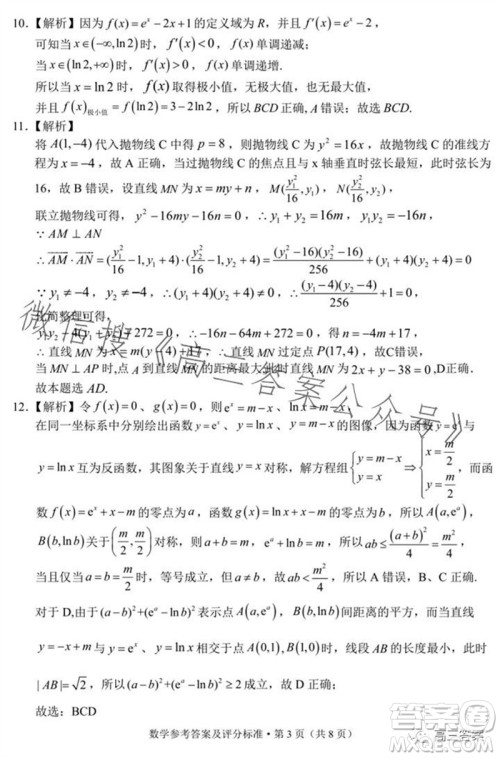 10.【解析】因为 f(x)=e^x-2x+1 的定义域为 R，并且 f'(x)=e^x-2，
可知当 x∈(-∞,ln2) 时，f'(x)<0，f(x) 单调递减；
当 x∈(ln2,+∞) 时，f'(x)>0，f(x) 单调递增.
所以当 x=ln2 时，f(x) 取得极小值，无极大值，也无最大值，
并且 f(x)极小值=f(ln2)=3-2ln2，所以 BCD 正确，A 错误；故选 BCD.
11.【解析】
将 A(1,-4) 代入抛物线 C 中得 p=8，则抛物线 C 的方程为 y²=16x，故抛物线 C 的准线方
程为 x=-4，故 A 正确，当过抛物线 C 的焦点且与 x 轴垂直时弦长最短，此时弦长为
16，故 B 错误，设直线 MN 为 x=my+n，M(y₁²/16,y₁)，N(y₂²/16,y₂)，
联立抛物线可得，y²-16my-16n=0，∴y₁+y₂=16m，y₁y₂=-16n，
∵AM⊥AN
∴AM·AN=(y₁²/16-1,y₁+4)·(y₂²/16-1,y₂+4)=(y₁²-16)(y₂²-16)/256+(y₁+4)(y₂+4)=0，
∵y₁≠-4，y₂≠-4，∴(y₁+4)(y₂+4)≠0，∴(y₁-4)(y₂-4)/256+1=0，
化简整理可得，
y₁y₂-4(y₁+y₂)+272=0，∴-16n-64m+272=0，得 n=-4m+17，
故直线 MN 为 x=m(y-4)+17，故直线 MN 过定点 P(17,4)，故 C 错误
当 MN⊥AP 时，点 A 到直线 MN 的距离最大，此时直线 MN 为 2x+y-38=0，D正确，
故本题选 AD.
12.【解析】令 f(x)=0、g(x)=0，则 e^x=m-x，ln x=m-x，
在同一坐标系中分别绘出函数 y=e^x、y=ln x、y=m-x 的图像，因为函数 y=e^x 与
y=ln x 互为反函数，其图象关于直线 y=x 对称，解方程组 {y=m-x y=x ⇒ {x=m/2 y=m/2，函
数 f(x)=e^x+x-m 的零点为 a，函数 g(x)=ln x+x-m 的零点为 b，所以，A(a,e^a)，
B(b,ln b) 关于 (m/2,m/2) 对称，则 a+b=m，e^a=m-a=b，所以 ab≤(a+b)²/4=m²/4，
当且仅当 a=b=m/2 时，等号成立，但 a≠b，故 ab<m²/4，所以 A 错误，B、C 正确.
对于 D,由于 (a-b)²+(e^a-ln b)² 为点 A(a,e^a)，B(b,ln b) 间距离的平方，而当直线
y=-x+m 与 y=e^x、y=ln x 相交于点 A(0,1)、B(1,0) 时，线段 AB 的长度最小，此时
|AB|=√2,所以(a-b)²+(e^a-ln b)²≥2,所以 D 正确;
故选：BCD
数学参考答案及评分标准·第 3 页（共 8 页）
微信搜《高三答案公众号》
高三答案